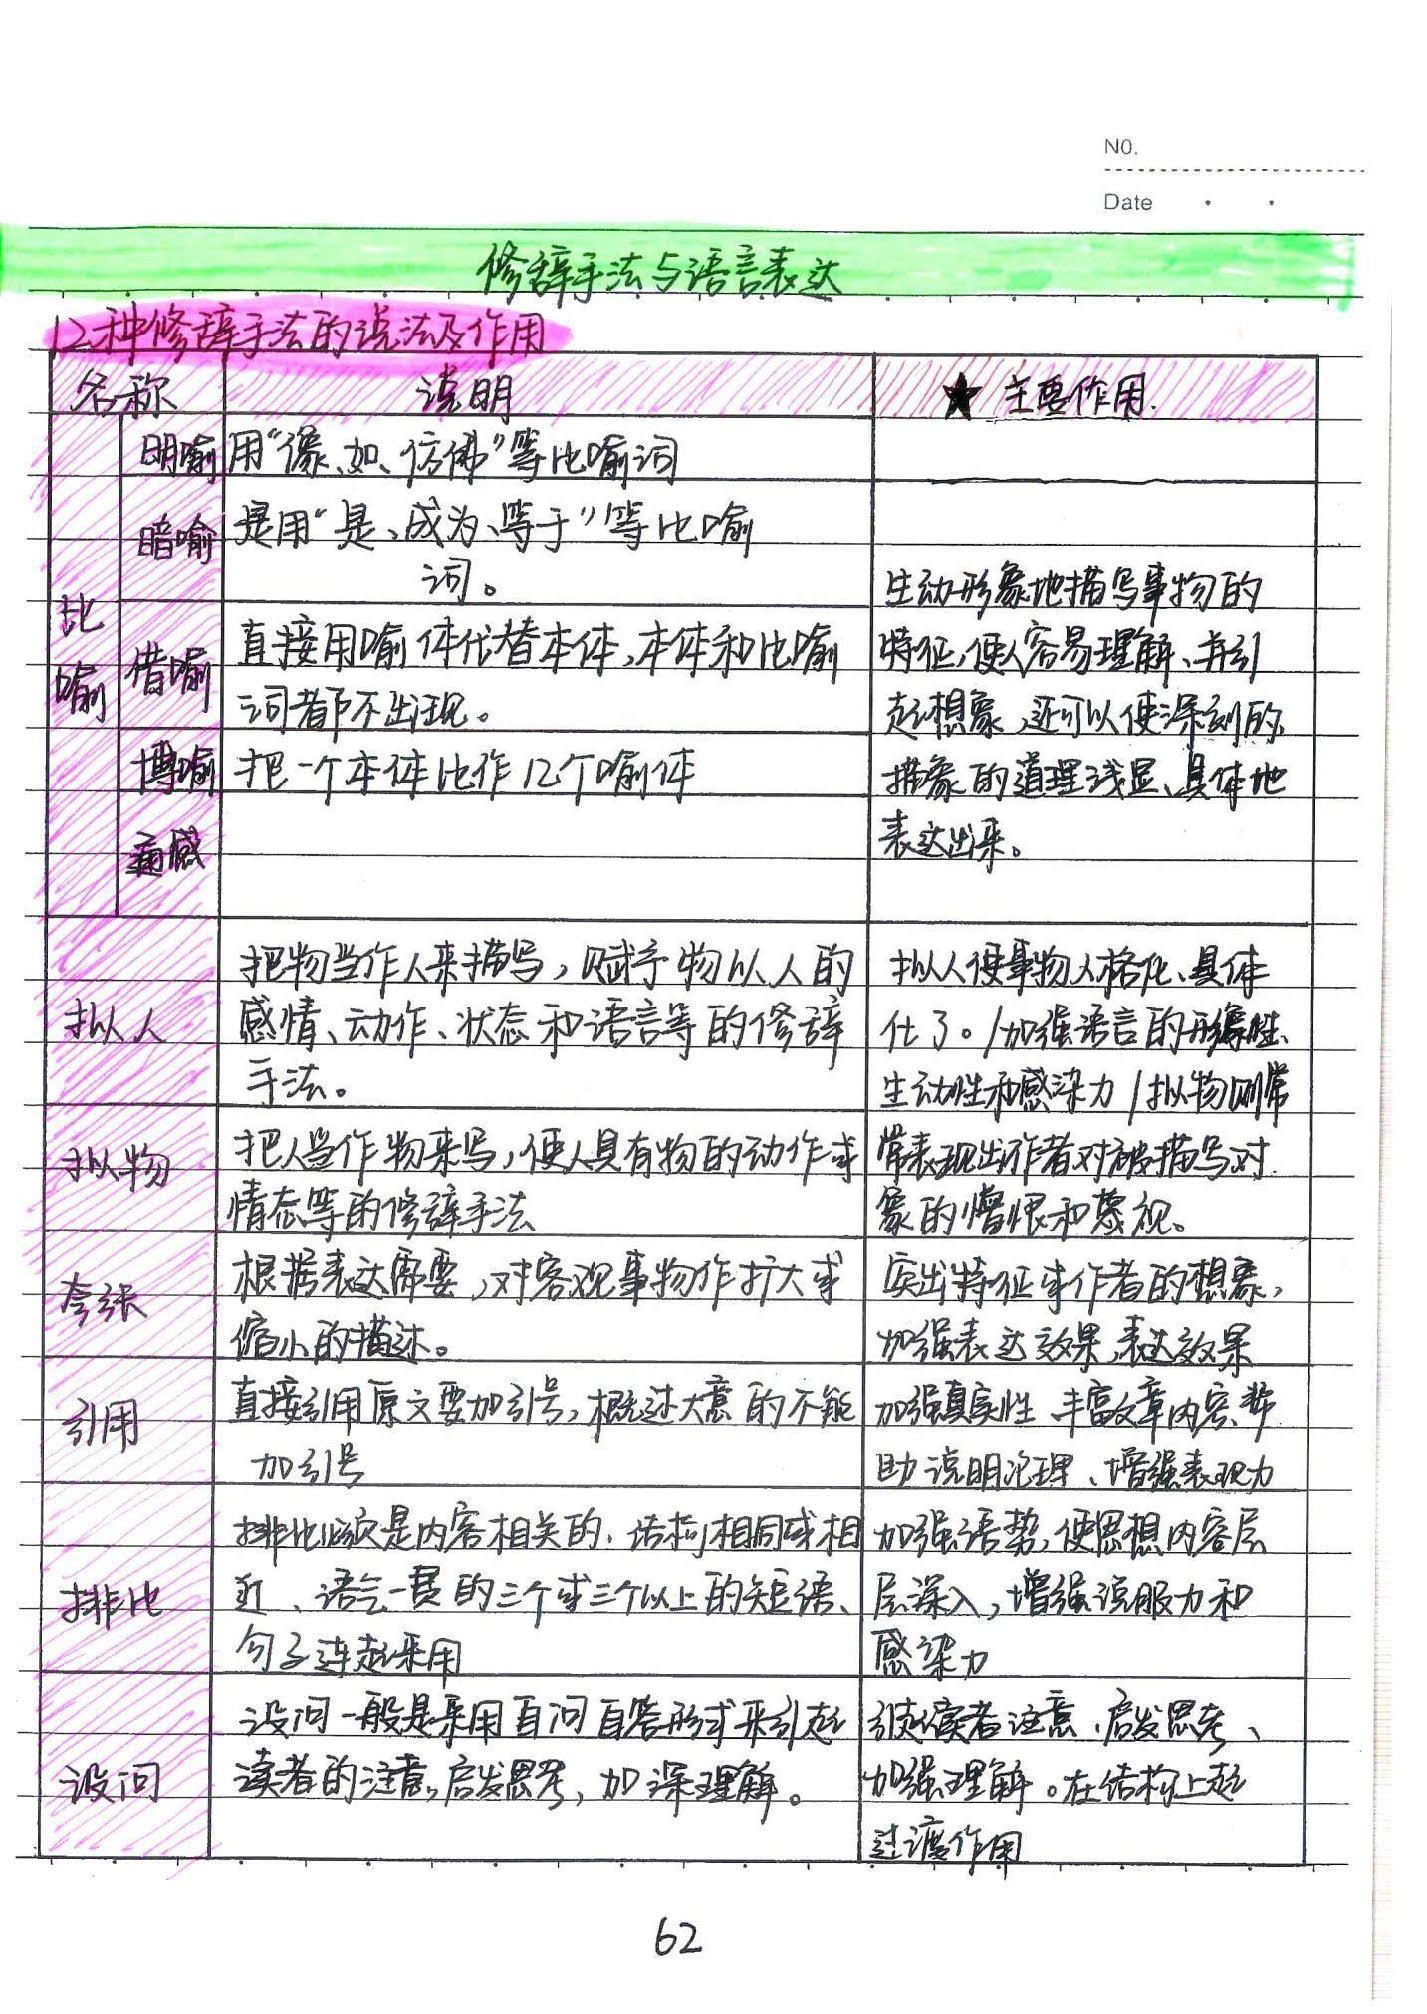 NO.
Date
修辞手法与语言表达
12种修辞手法的说法及作用
名称 说明 ★ 主要作用.
比喻
明喻 用“像、如、仿佛”等比喻词
暗喻 是用“是、成为、等于”等比喻
词。
借喻 直接用喻体代替本体,本体和比喻
词都不出现。
博喻 把一个本体比作几个喻体
通感
生动形象地描写事物的
特征,使人容易理解、并引
起想象,还可以使深刻的、
抽象的道理浅显、具体地
表达出来。
拟人
把物当作人来描写,赋予物以人的
感情、动作、状态和语言等的修辞
手法。
拟人使事物人格化、具体
化了。/加强语言的形象性、
生动性和感染力/拟物则常
常表现出作者对被描写对
象的憎恨和蔑视。
拟物
把人当作物来写,使人具有物的动作或
情态等的修辞手法
夸张
根据表达需要,对客观事物作扩大或
缩小的描述。
突出特征或作者的想象,
加强表达效果,表达效果
引用
直接引用原文要加引号,概述大意的不能
加引号
加强真实性 丰富文章内容.帮
助说明论理、增强表现力
排比
排比必须是内容相关的、结构相同或相
近、语气一贯的三个或三个以上的短语、
句子连起来用
加强语势,使思想内容层
层深入,增强说服力和
感染力
设问
设问一般是采用自问自答形式来引起
读者的注意,启发思考,加深理解。
引起读者注意、启发思考、
加强理解。在结构上起
过渡作用
62